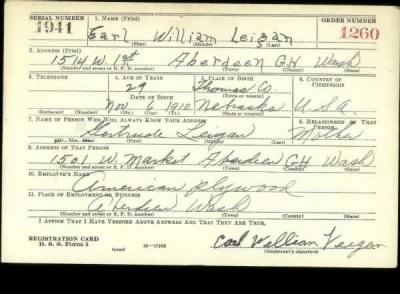 SERIAL NUMBER 1. NAME (Print) ORDER NUMBER
1941 Earl William Leigan 1260
(First) (Middle) (Last)
2. ADDRESS (Print)
1514 W. 1st Aberdeen GH Wash
(Number and street or R. F. D. number) (Town) (County) (State)
3. TELEPHONE 4. AGE IN YEARS 5. PLACE OF BIRTH 6. COUNTRY OF CITIZENSHIP
29 Thomas Co.
DATE OF BIRTH (Town or county)
Nov 6 1910 Nebraska U.S.A.
(Exchange) (Number) (Mo.) (Day) (Yr.) (State or country)
7. NAME OF PERSON WHO WILL ALWAYS KNOW YOUR ADDRESS 8. RELATIONSHIP OF THAT PERSON
Gertrude Leigan Mother
(Mr., Mrs., Miss) (First) (Middle) (Last)
9. ADDRESS OF THAT PERSON
1501 W. Market Aberdeen GH Wash
(Number and street or R. F. D. number) (Town) (County) (State)
10. EMPLOYER'S NAME
American plywood
11. PLACE OF EMPLOYMENT OR BUSINESS
Aberdeen Wash
(Number and street or R. F. D. number) (Town) (County) (State)
I AFFIRM THAT I HAVE VERIFIED ABOVE ANSWERS AND THAT THEY ARE TRUE.
REGISTRATION CARD
D. S. S. Form 1 (over) 16—17105 Earl William Leigan
(Registrant's signature)